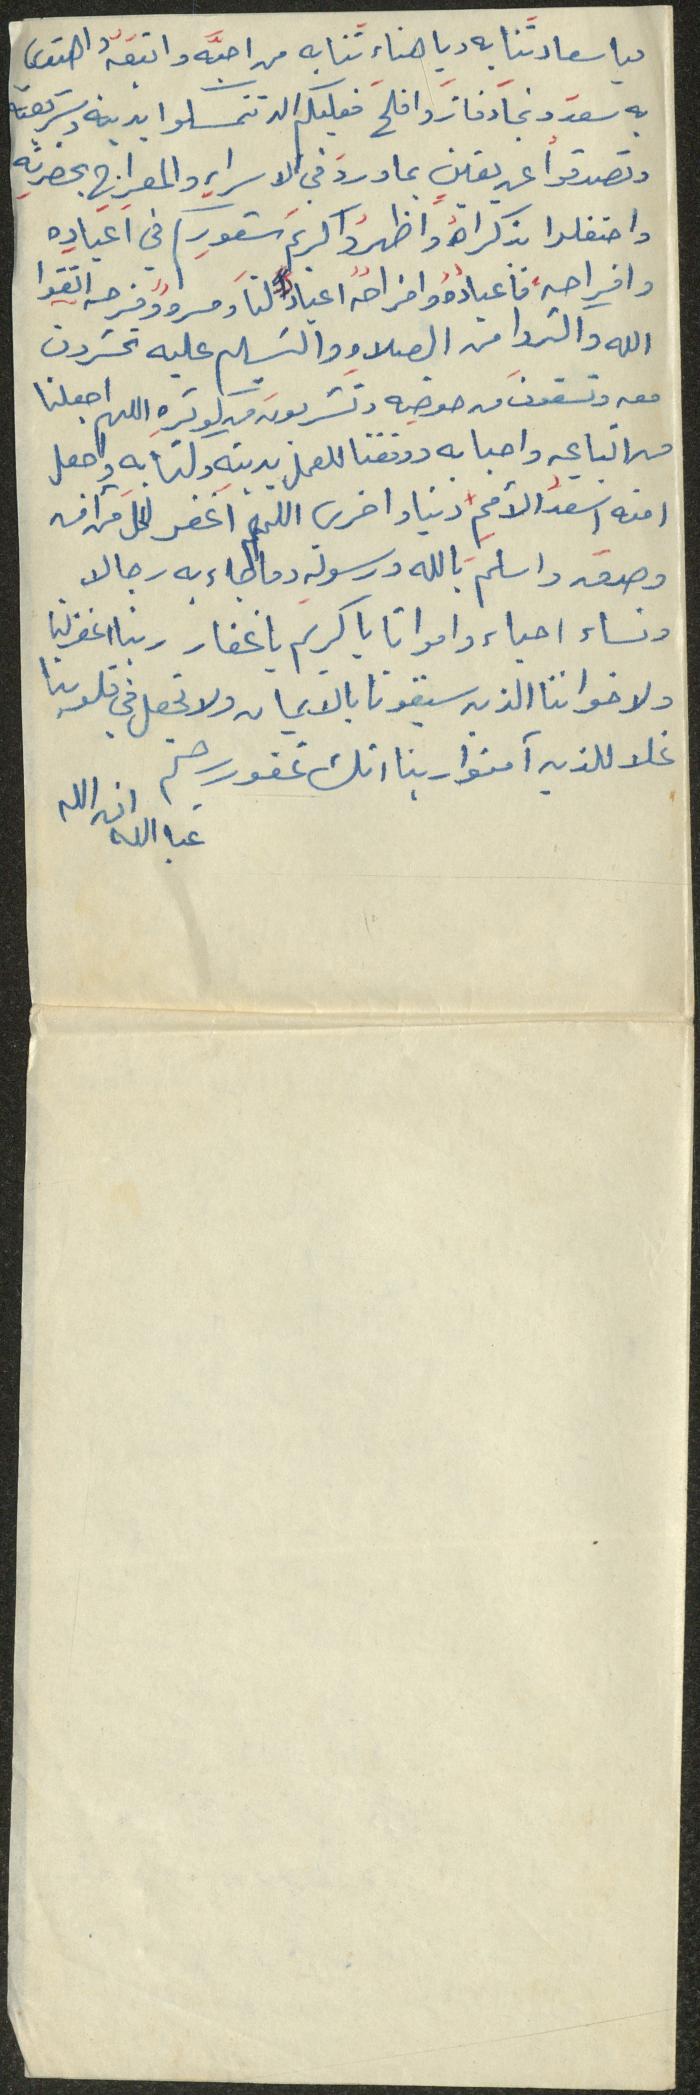 فيا سعادتنا به ويا هناءتنا به من احبه واتبعه واهتدى
به سعد ونجا وفاز وافلح فعليكم ان تتمسكوا بدينه وشريعته
وتصدقوا عن يقين بما ورد في الاسراء والمعراج بحضرته
واحتفلوا بذكراه واظهروا كريم شعوركم في اعياده
وافراحه فأعياده وافراحه اعياد لنا وسرور وفرحه اتقوا
الله واكثروا من الصلاة والتسليم عليه تحشرون
معه وتسقون من حوضه وتشربون من كوثره اللهم اجعلنا
من اتباعه واحبابه ووفقنا للعمل بدينه وكتابه واجعل
امته اسعد الأمم دنيا واخرى اللهم اغفر لكل من آمن
وصدق واسلم بالله ورسوله وما جاء به رجالا
ونساء احياء وامواتا يا كريم يا غفار ربنا اغفر لنا
ولاخواننا الذين سبقونا بالايمان ولا تجعل في قلوبنا
غلا للذين آمنوا ربنا انك غفور رحيم
ان الله
عباد الله